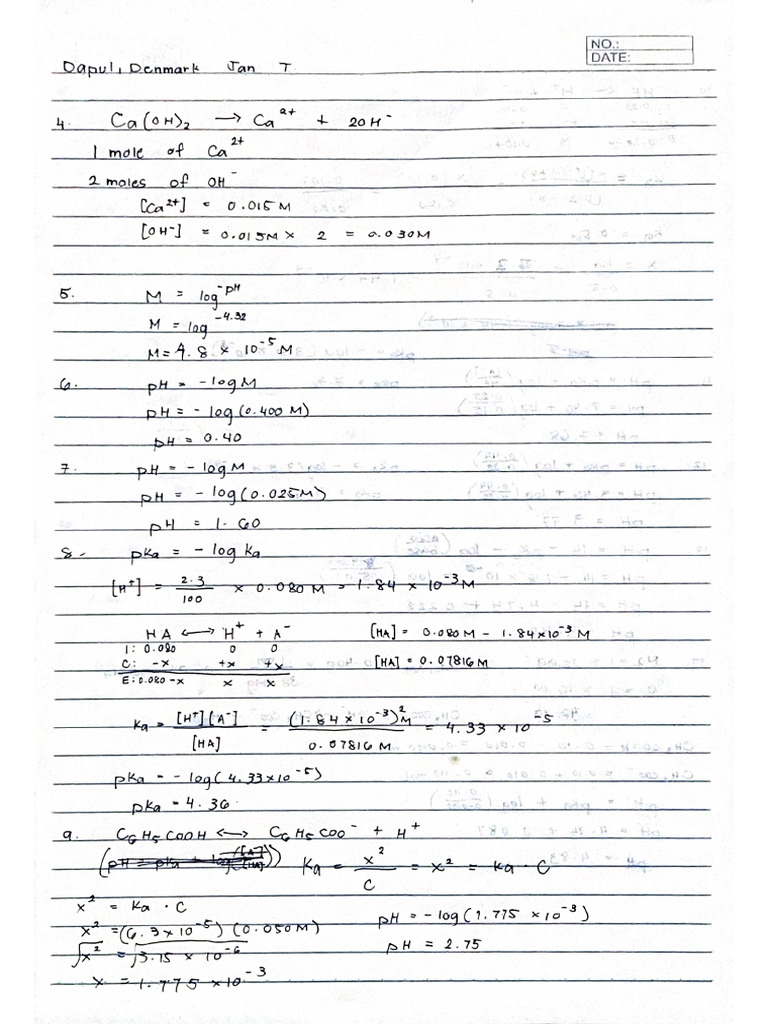 NO.:
DATE:
Dapul, Denmark Jan T.
4. Ca(OH)₂ → Ca²⁺ + 2OH⁻
1 mole of Ca²⁺
2 moles of OH⁻
[Ca²⁺] = 0.015 M
[OH⁻] = 0.015M × 2 = 0.030M
5. M = log^-pH
M = log^-4.32
M = 4.8 × 10⁻⁵ M
6. pH = -log M
pH = -log(0.400 M)
pH = 0.40
7. pH = -log M
pH = -log(0.025M)
pH = 1.60
8. pKa = -log Ka
[H⁺] = 2.3/100 × 0.080 M = 1.84 × 10⁻³ M
HA ⟷ H⁺ + A⁻ [HA] = 0.080 M - 1.84×10⁻³ M
I: 0.080 0 0
C: -x +x +x [HA] = 0.07816 M
E: 0.080-x x x
Ka = [H⁺][A⁻]/[HA] = (1.84 × 10⁻³)² M/0.07816 M = 4.33 × 10⁻⁵
pKa = -log(4.33×10⁻⁵)
pKa = 4.36
9. C₆H₅COOH ⟷ C₆H₅COO⁻ + H⁺
(pH = pKa + log [A⁻]/[HA]) Ka = x²/C = x² = Ka · C
x² = Ka · C
x² = (6.3 × 10⁻⁵)(0.050M) pH = -log(1.775 × 10⁻³)
√x² = √3.15 × 10⁻⁶ pH = 2.75
x = 1.775 × 10⁻³